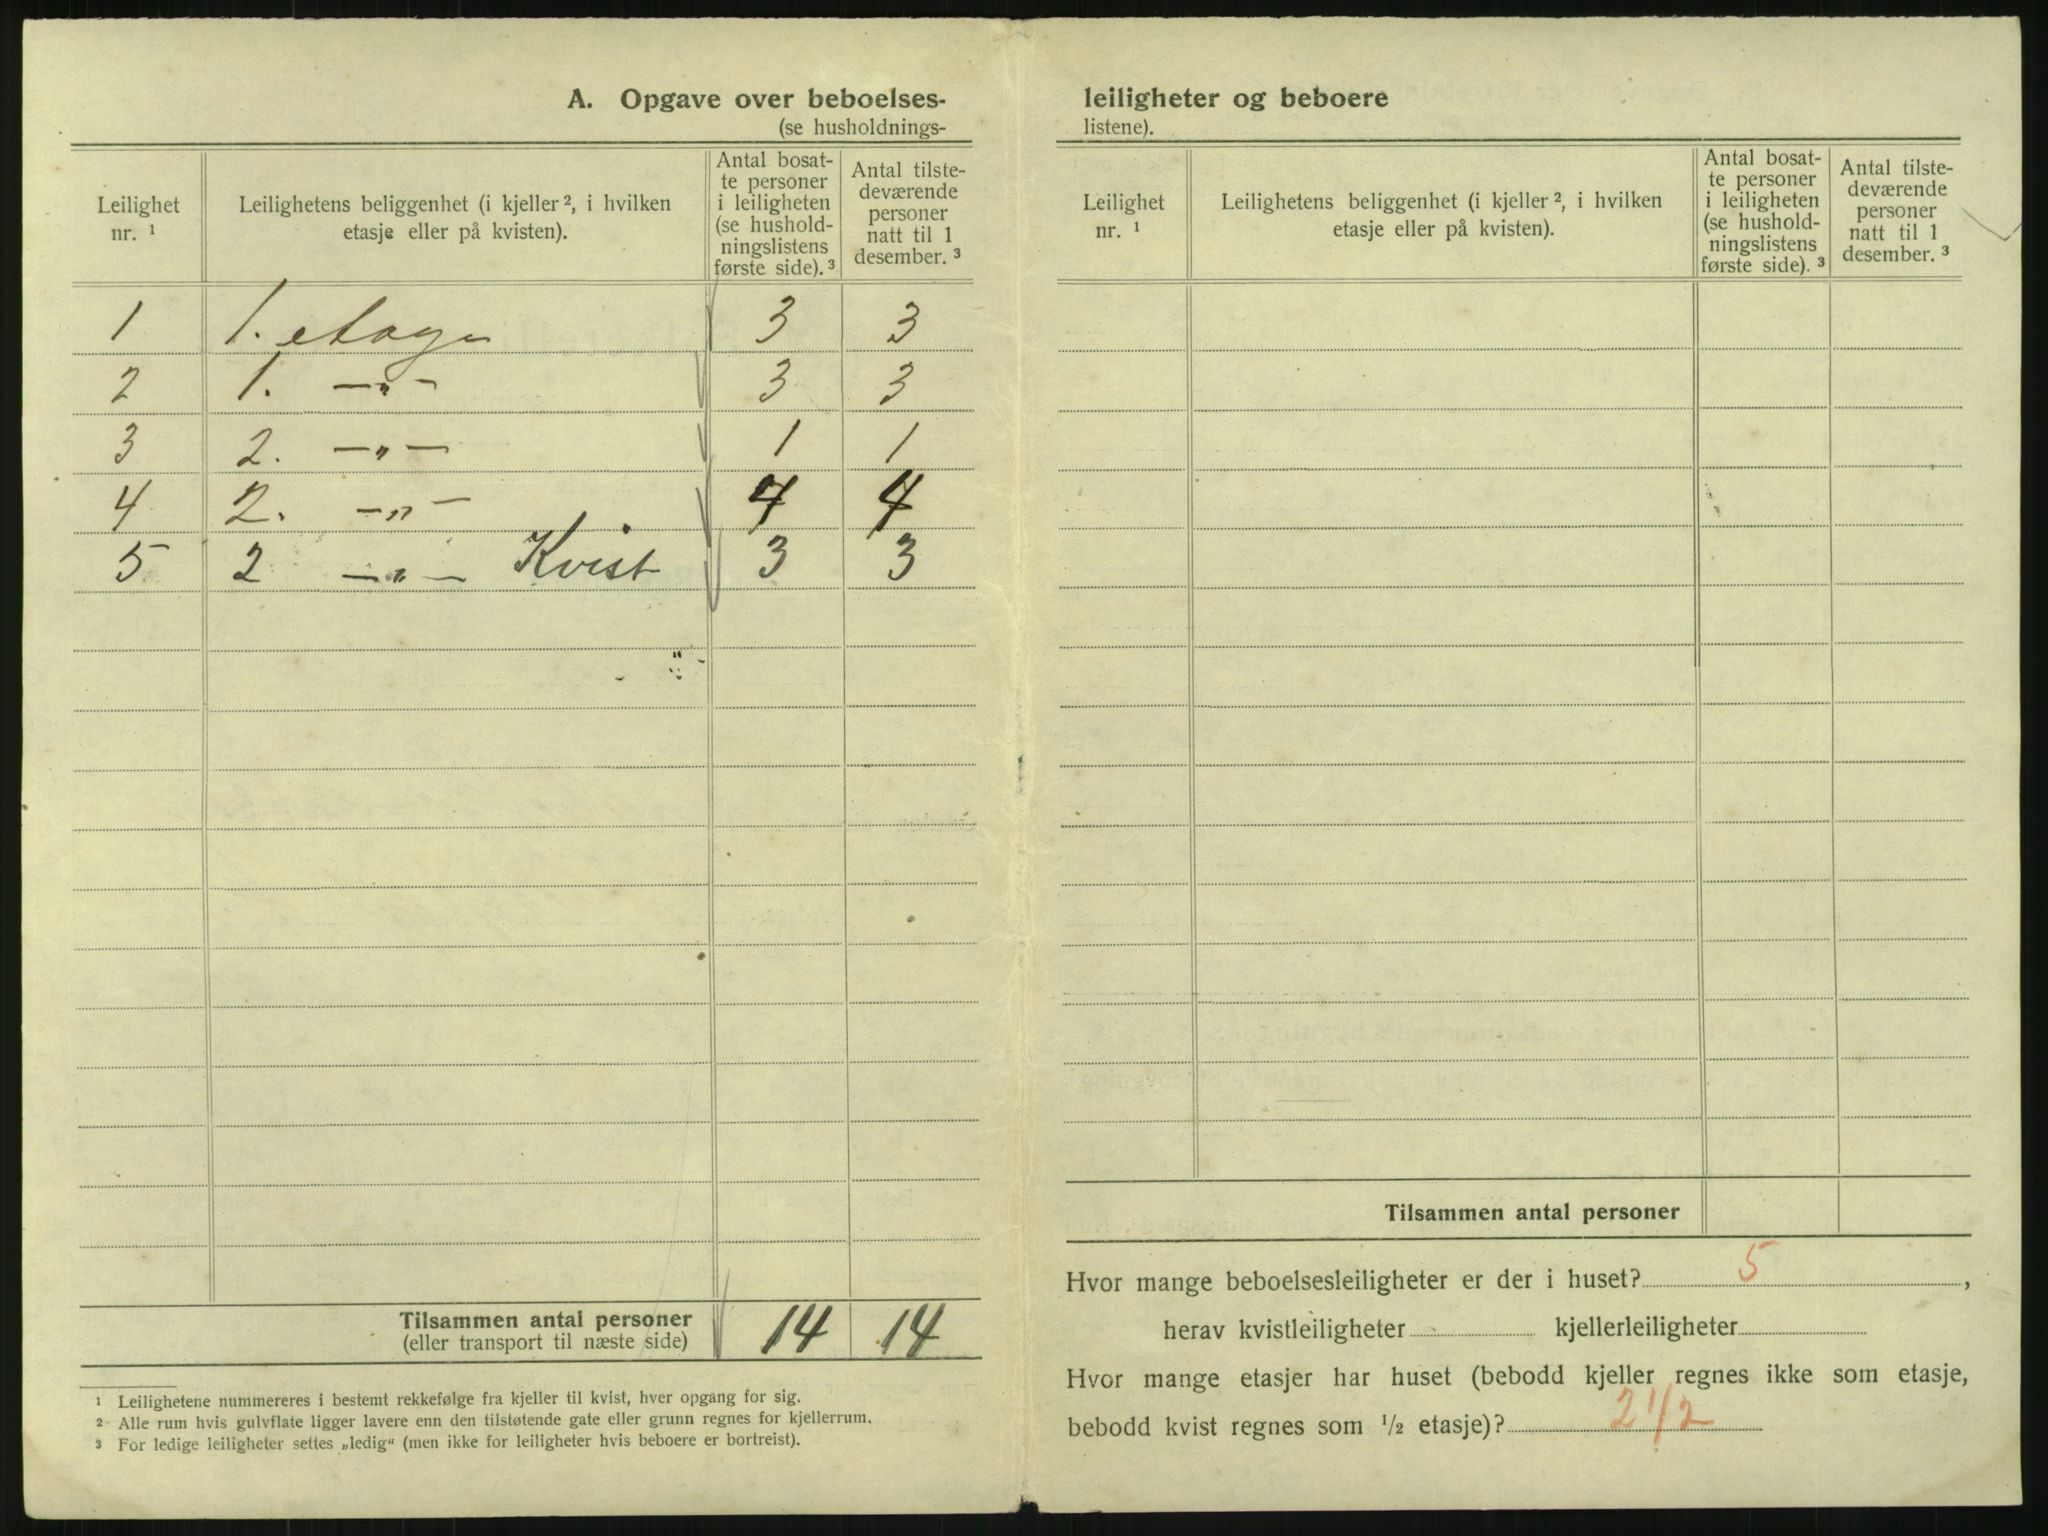 A. Opgave over beboelses-
(se husholdnings-
Leilighet nr. 1
Leilighetens beliggenhet (i kjeller 2, i hvilken etasje eller på kvisten).
Antal bosat-
te personer
i leiligheten
(se hushold-
ningslistens
første side). 3
Antal tilste-
deværende
personer
natt til 1
desember. 3
1 1. etage 3 3
2 1. —„— 3 3
3 2. —„— 1 1
4 2. —„— 4 4
5 2 —„— Kvist 3 3
Tilsammen antal personer 14 14
(eller transport til næste side)
1 Leilighetene nummereres i bestemt rekkefølge fra kjeller til kvist, hver opgang for sig.
2 Alle rum hvis gulvflate ligger lavere enn den tilstøtende gate eller grunn regnes for kjellerrum.
3 For ledige leiligheter settes „ledig“ (men ikke for leiligheter hvis beboere er bortreist).
leiligheter og beboere
listene).
Leilighet nr. 1
Leilighetens beliggenhet (i kjeller 2, i hvilken etasje eller på kvisten).
Antal bosat-
te personer
i leiligheten
(se hushold-
ningslistens
første side). 3
Antal tilste-
deværende
personer
natt til 1
desember. 3
Tilsammen antal personer
Hvor mange beboelsesleiligheter er der i huset? 5 ,
herav kvistleiligheter kjellerleiligheter
Hvor mange etasjer har huset (bebodd kjeller regnes ikke som etasje,
bebodd kvist regnes som 1/2 etasje)? 2 1/2